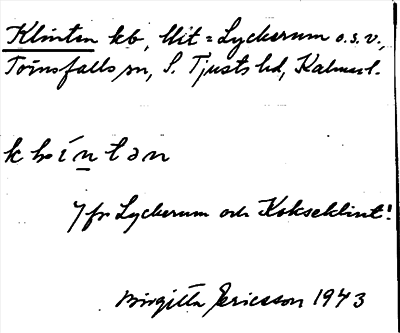 Klinten kb, Uit = Lyckerum o.s.v.,
Törnsfalls sn, S. Tjusts hd, Kalmar l.
Jfr Lyckerum och Kokseklint!
Birgitta Ericsson 1943